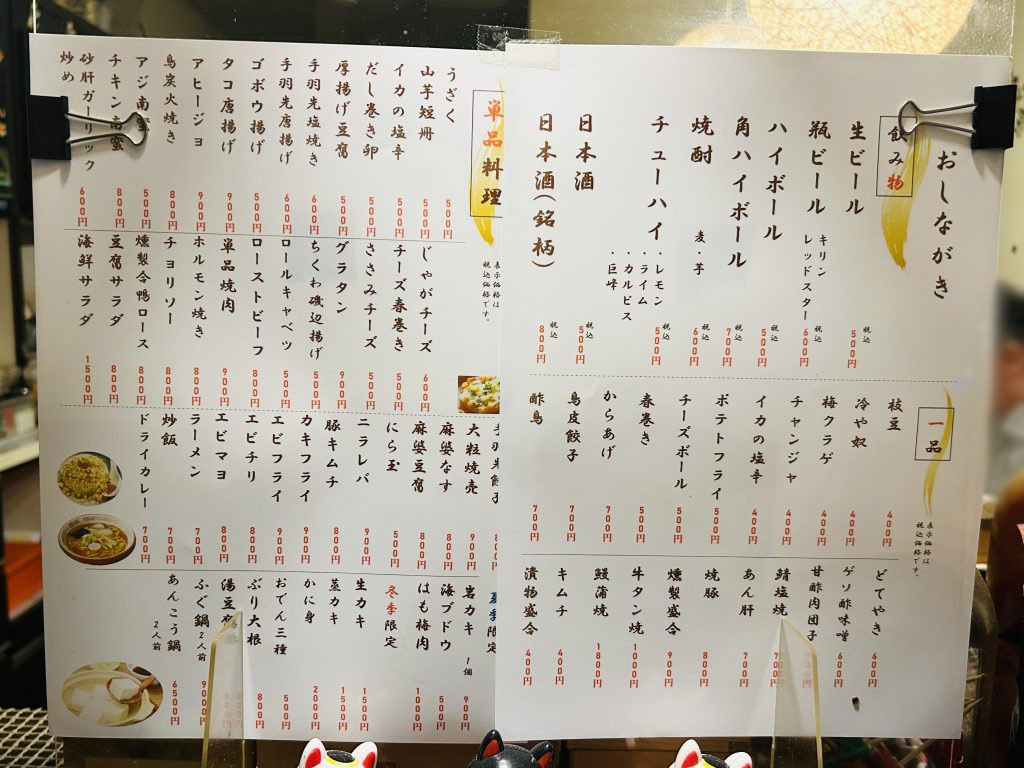 おしながき
飲み物
生ビール 税込 500円
瓶ビール キリン レッドスター 税込 600円
ハイボール 税込 500円
角ハイボール 税込 700円
焼酎 麦・芋 税込 600円
チューハイ ・レモン ・ライム ・カルピス ・巨峰 税込 500円
日本酒 税込 500円
日本酒(銘柄) 税込 800円
一品
表示価格は
税込価格です。
枝豆 400円
冷や奴 400円
梅クラゲ 400円
チャンジャ 400円
イカの塩辛 400円
ポテトフライ 500円
チーズボール 500円
春巻き 500円
からあげ 700円
鳥皮餃子 700円
酢鳥 700円
どてやき 600円
ゲソ酢味噌 600円
甘酢肉団子
鯖塩焼
あん肝 700円
焼豚 800円
燻製盛合 900円
牛タン焼 1000円
鰻蒲焼 1800円
キムチ 400円
漬物盛合 400円
単品料理
表示価格は
税込価格です。
うざく 500円
山芋短冊 500円
イカの塩辛 500円
だし巻き卵 500円
厚揚げ豆腐 500円
手羽先塩焼き 600円
手羽先唐揚げ 600円
ゴボウ揚げ 500円
タコ唐揚げ 900円
アヒージョ 900円
鳥炭火焼き 800円
アジ南蛮 500円
チキン南蛮 800円
砂肝ガーリック炒め 600円
じゃがチーズ 600円
チーズ春巻き 500円
ささみチーズ 500円
グラタン 900円
ちくわ磯辺揚げ 500円
ロールキャベツ 500円
ローストビーフ 800円
単品焼肉 900円
ホルモン焼き 800円
チョリソー 800円
燻製合鴨ロース 800円
豆腐サラダ 800円
海鮮サラダ 1500円
大粒焼売 900円
麻婆なす 800円
麻婆豆腐 800円
にら玉 500円
ニラレバ 900円
豚キムチ 800円
カキフライ 900円
エビフライ 900円
エビチリ 800円
エビマヨ 800円
ラーメン 700円
炒飯 700円
ドライカレー 700円
夏季限定
岩カキ 1個 900円
海ブドウ 500円
はも梅肉 1000円
冬季限定
生カキ 1500円
蒸カキ 1500円
かに身 2000円
おでん三種 500円
ぶり大根 800円
湯豆腐
ふぐ鍋 2人前
あんこう鍋 2人前 6500円